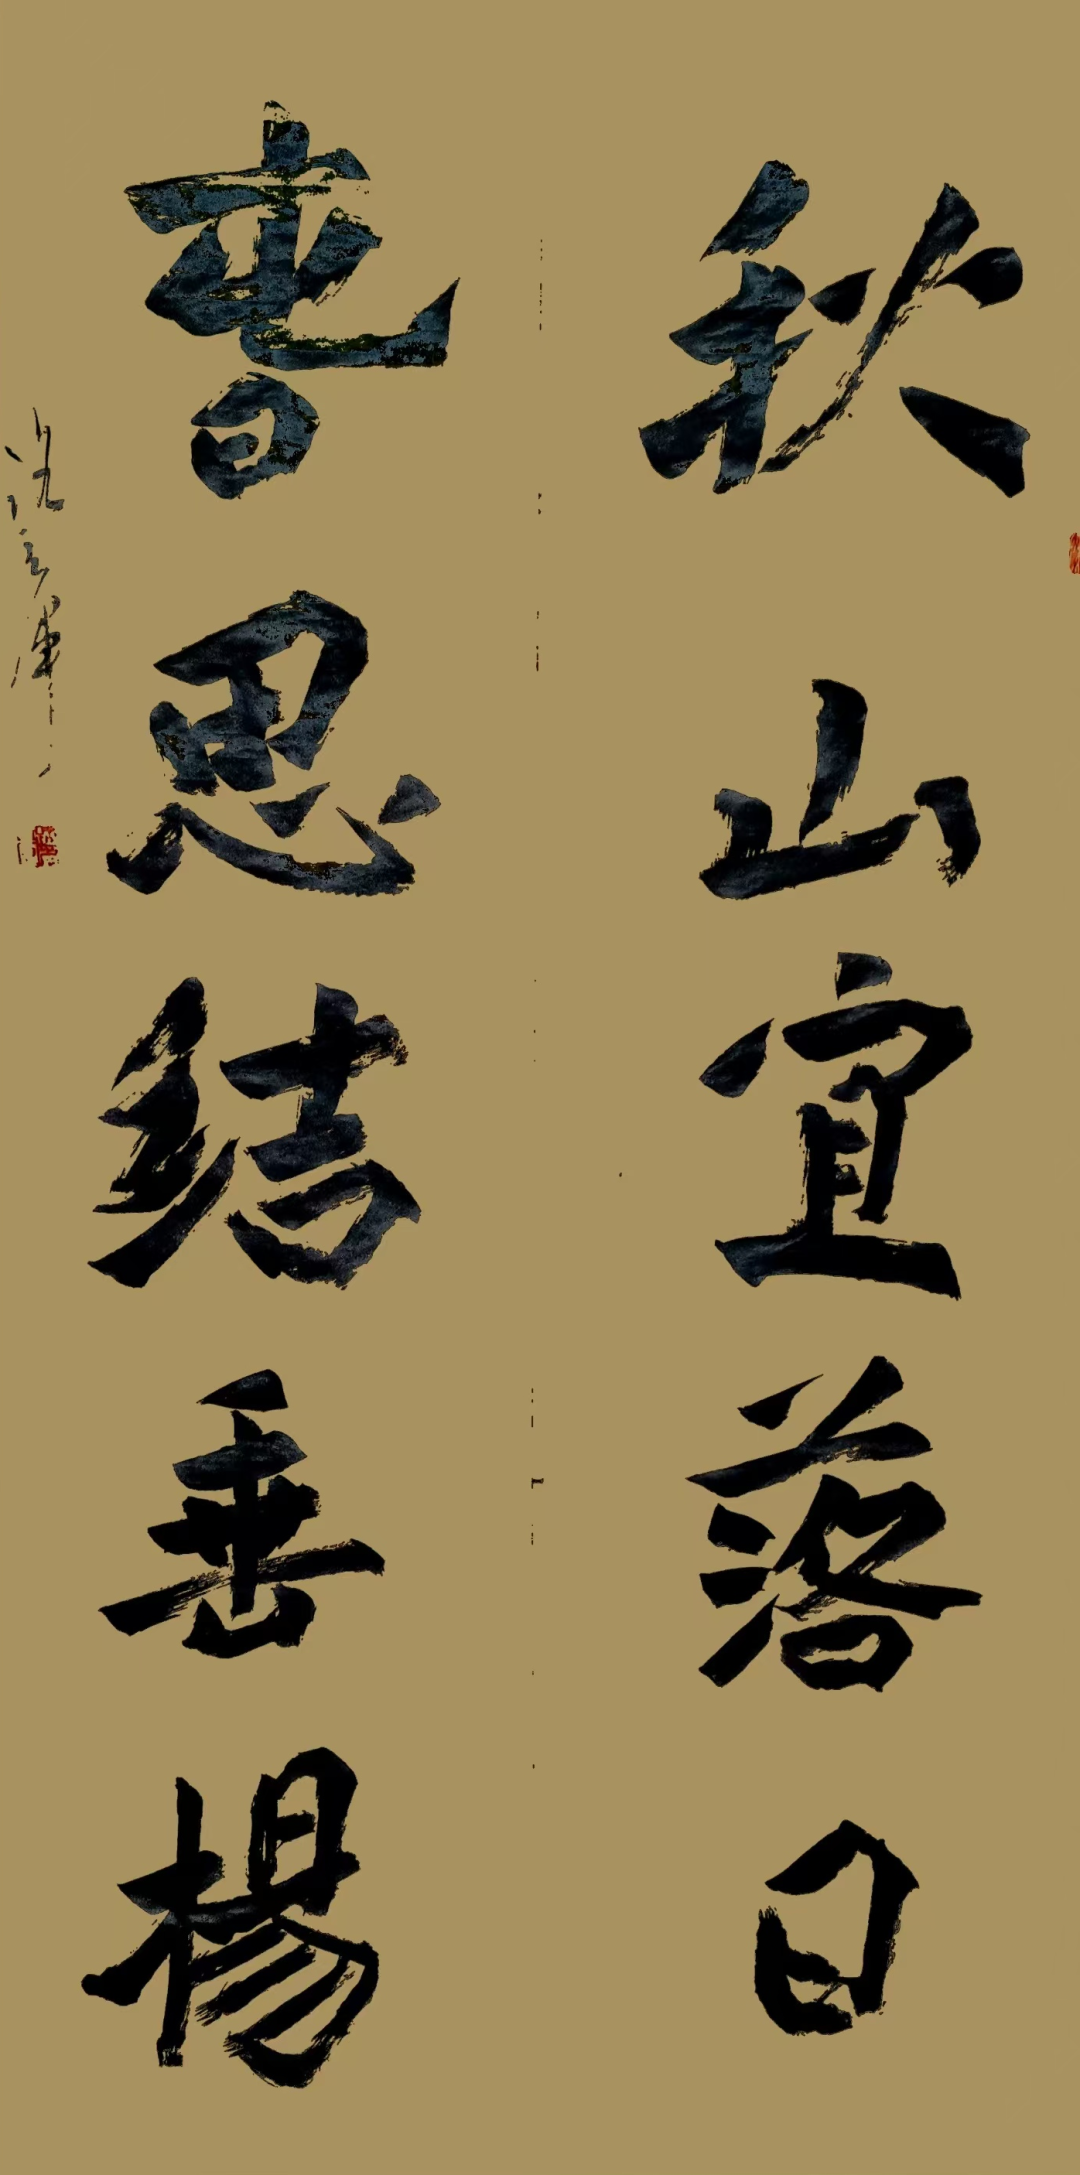 秋山宜落日
春思結垂楊